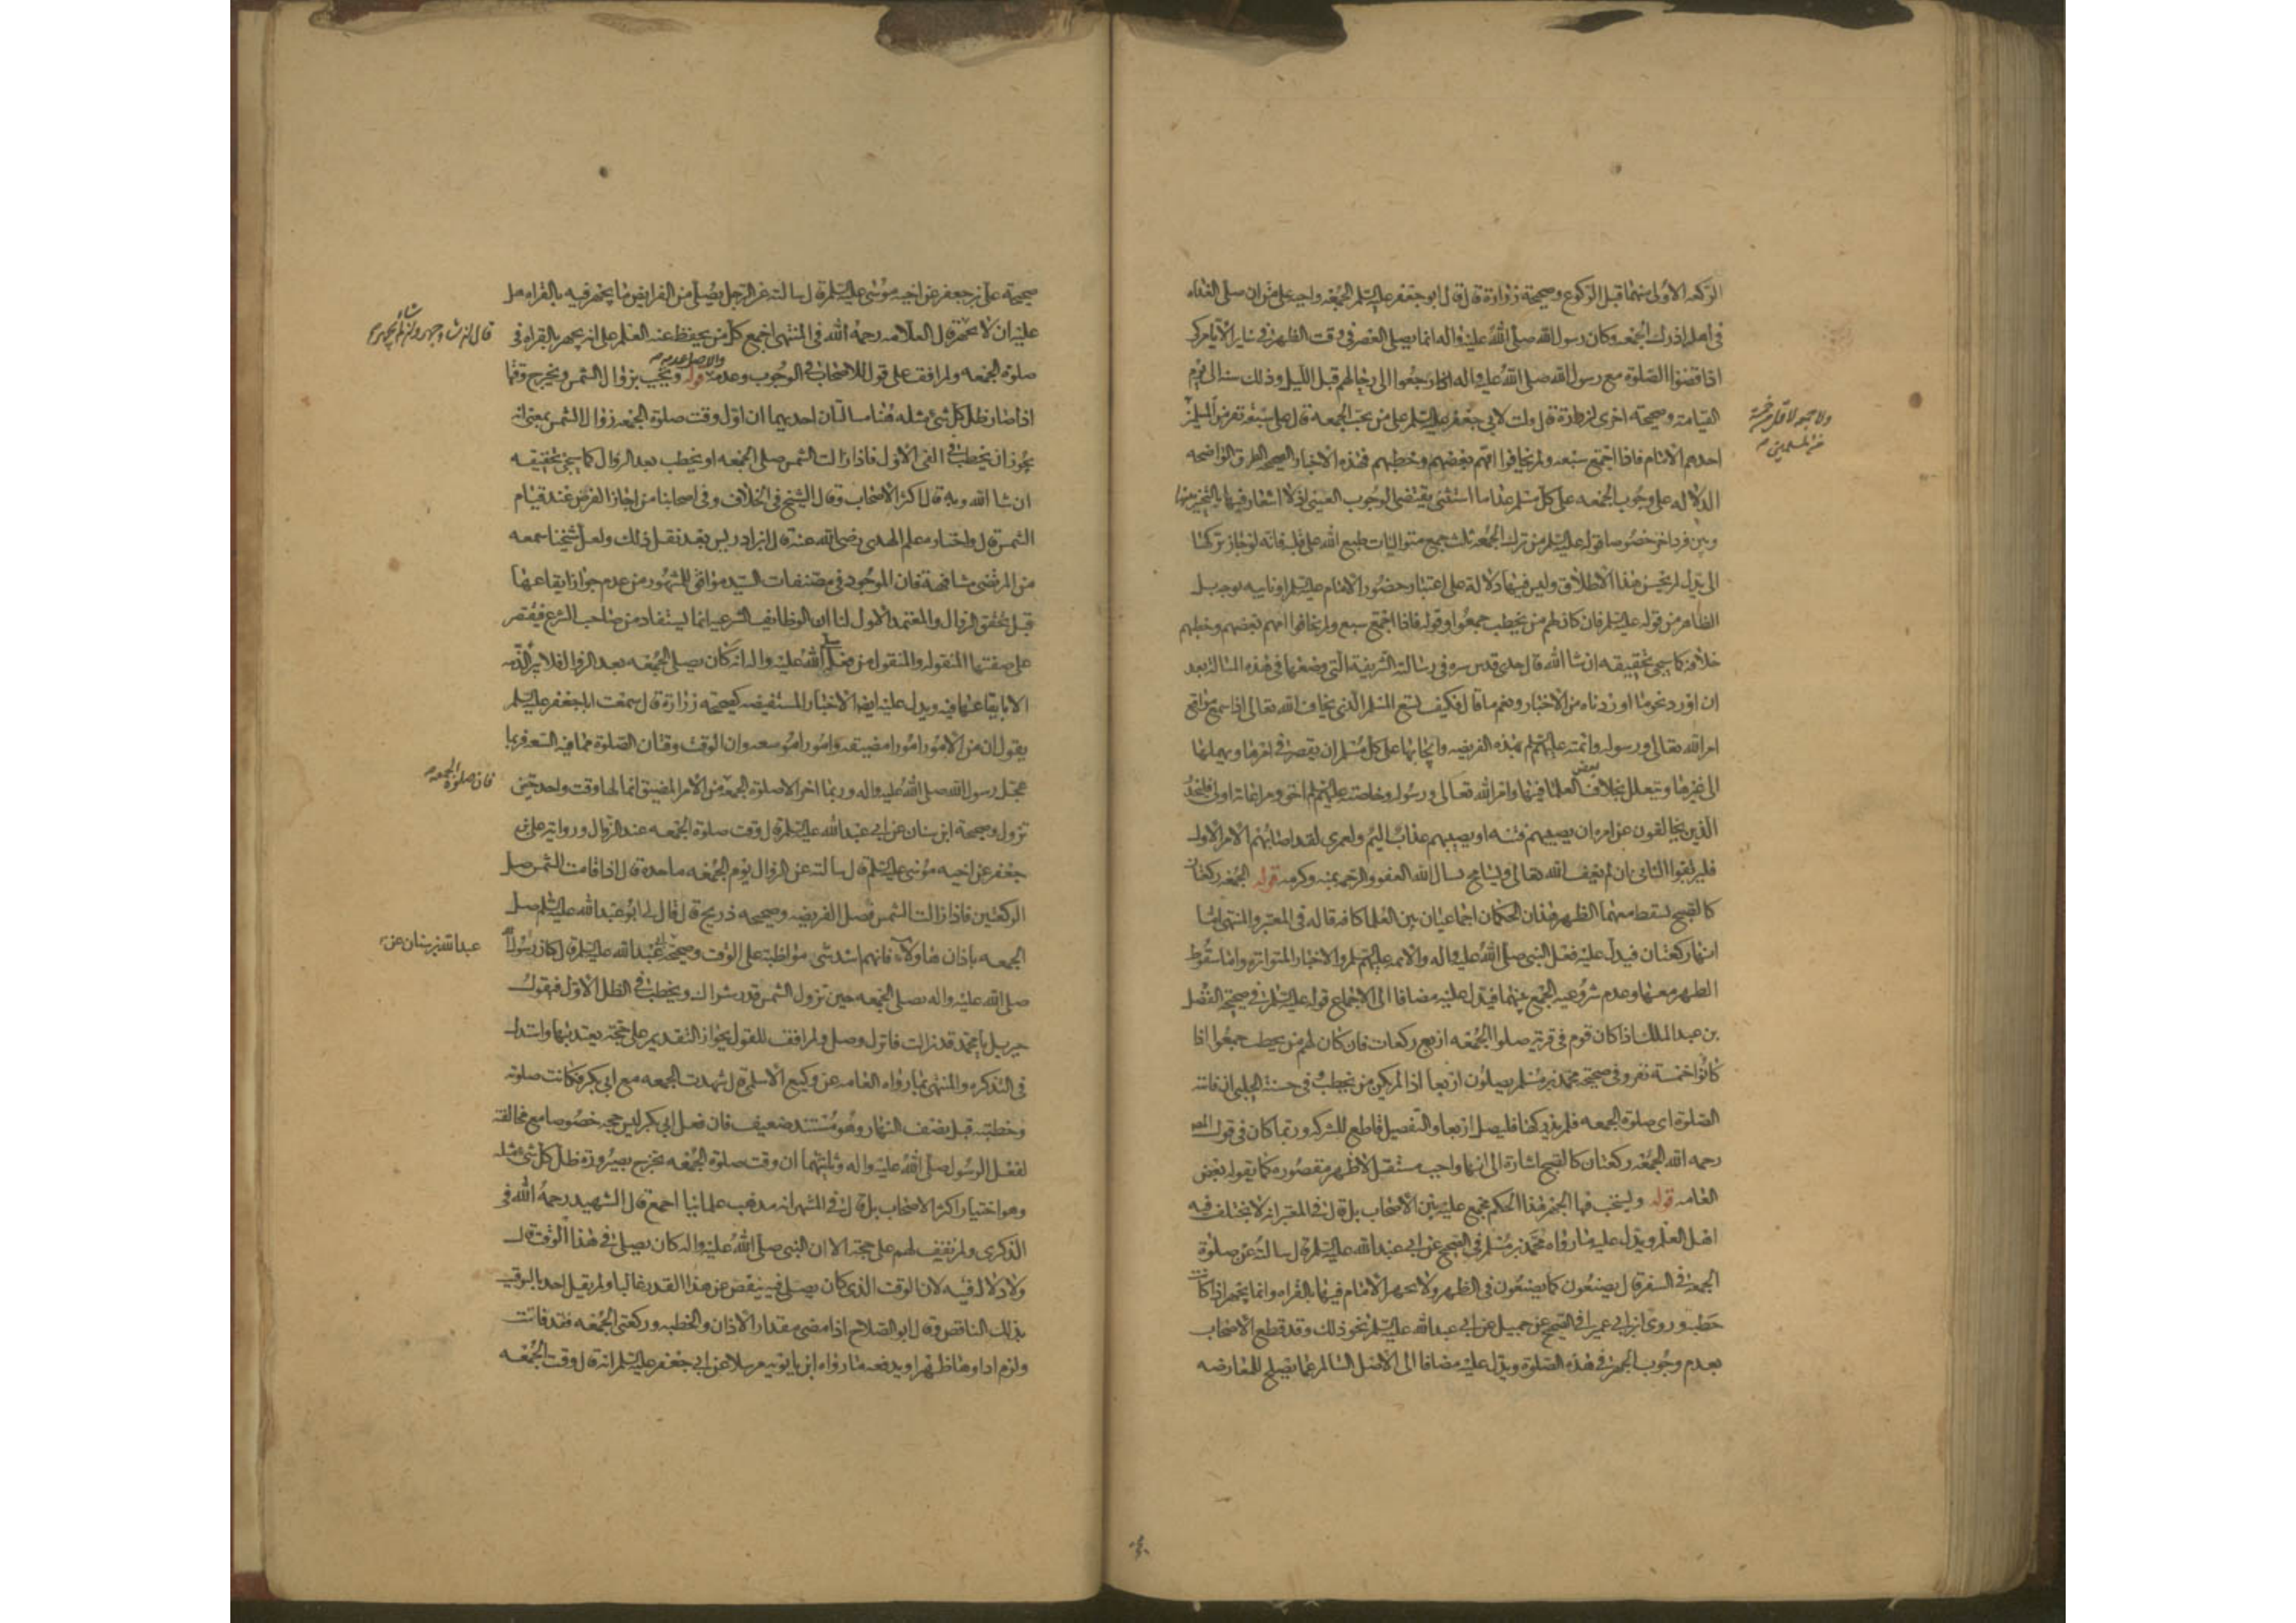 الركعه الاولى منهما قبل الركوع وصحيحة زرارة قال قال ابو جعفر عليه السلم الجمعه واجبه على من ان صلى الغداه
في اهله ادرك الجمعه وكان رسول الله صلى الله عليه واله انما يصلى العصر في وقت الظهر في ساير الايام كى
اذا قضوا الصلوة مع رسول الله صلى الله عليه واله رجعوا الى رحالهم قبل الليل وذلك سنة الى يوم
القيامة وصحيحته اخرى لزرارة قال قلت لابي جعفر عليه السلم على من تجب الجمعه قال على سبعة نفر من المسلمين
ولا جمعة لاقل من خمسة
من المسلمين
احدهم الامام فاذا اجتمع سبعه ولم يخافوا امهم بعضهم وخطبهم فهذه الاخبار الصحيحه الطرق الواضحه
الدلاله على وجوب الجمعه على كل مسلم عدا ما استثنى يقتضى الوجوب العينى اذ لا اشعار فيها بالتخيير بينها
وبين فرد اخر خصوصا قوله عليه السلم من ترك الجمعه ثلث جمع متواليات طبع الله على قلبه فانه لو جاز تركها
الى بدل لم يحسن هذا الاطلاق وليس فيها دلالة على اعتبار حضور الامام عليه السلم او نايبه بوجه بل
الظاهر من قوله عليه السلم فان كان لهم من يخطب جمعوا وقوله فاذا اجتمع سبع ولم يخافوا امهم بعضهم وخطبهم
خلافه كما سيجئ تحقيقه انشا الله قال جدى قدس سره في رسالته الشريفة التى وضعها في هذه المسالة بعد
ان اورد نحو ما اوردناه من الاخبار ونعم ما قال فكيف يسع المسلم الذى يخاف الله تعالى اذا سمع مواقع
امر الله تعالى ورسوله وائمته عليهم السلم بهذه الفريضه وايجابها على كل مسلم ان يقصر في امرها ويهملها
الى غيرها ويتعلل بخلاف بعض العلما فيها وامر الله تعالى ورسوله وخاصته عليهم السلم احق ومراعاته اولى فليحذر
الذين يخالفون عن امره ان يصيبهم فتنه او يصيبهم عذاب اليم ولعمرى لقد اصابهم الامر الاول
فليرتقبوا الثانى ان لم يعف الله تعالى ويسامح نسال الله العفو والرحمه بمنه وكرمه قوله الجمعه ركعتان
كالصبح يسقط معهما الظهر هذان الحكمان اجماعيان بين العلما كافه قاله في المعتبر والمنتهى اما
انها ركعتان فيدل عليه فعل النبى صلى الله عليه واله والائمه عليهم السلم والاخبار المتواتره واما سقوط
الظهر معها وعدم شروعيه الجمع بينهما فيدل عليه مضافا الى الاجماع قوله عليه السلم في صحيحة الفضل
بن عبد الملك اذا كان قوم في قرية صلوا الجمعه اربع ركعات فان كان لهم من يخطب جمعوا اذا
كانوا خمسة نفر وفي صحيحة محمد بن مسلم يصلون اربعا اذا لم يكن من يخطب وفي حسنة الحلبى ان فاتته
الصلوة اى صلوة الجمعه فلم يدركها فليصل اربعا والتفصيل قاطع للشركه وربما كان في قول المص
رحمه الله الجمعه ركعتان كالصبح اشارة الى انها واجب مستقل لا ظهر مقصوره كما يقوله بعض
العامه قوله ويستحب فيها الجهر هذا الحكم مجمع عليه بين الاصحاب بل قال في المعتبر انه لا يختلف فيه
اهل العلم ويدل عليه ما رواه محمد بن مسلم في الصحيح عن ابي عبد الله عليه السلم قال سالته عن صلوة
الجمعه في السفر قال يصنعون كما يصنعون في الظهر ولا يجهر الامام فيها بالقراه وانما يجهر اذا كانت
خطبه وروى ابن ابي عمير في الصحيح عن جميل عن ابي عبد الله عليه السلم نحو ذلك وقد قطع الاصحاب
بعدم وجوب الجهر في هذه الصلوة ويدل عليه مضافا الى الاصل السالم عما يصلح للمعارضه
صحيحة على بن جعفر عن اخيه موسى عليه السلم قال سالته عن الرجل يصلى من الفرايض ما يجهر فيه بالقراه هل
عليه ان لا يجهر قال العلامه رحمه الله في المنتهى اجمع كل من يحفظ عنه العلم على انه يجهر بالقراه في
قال ان شاء جهر وان شاء لم يجهر
صلوة الجمعه ولم اقف على قول للاصحاب في الوجوب وعدمه والاصل عدمه قوله وتجب بزوال الشمس ويخرج وقتها
اذا صار ظل كل شئ مثله هنا مسالتان احديهما ان اول وقت صلوة الجمعه زوال الشمس بمعنى انه
يجوز ان يخطب في الفئ الاول فاذا زالت الشمس صلى الجمعه او يخطب بعد الزوال كما سيجئ تحقيقه
ان شا الله وبه قال اكثر الاصحاب وقال الشيخ في الخلاف وفي اصحابنا من اجاز الفرض عند قيام
الشمس قال واختاره علم الهدى رضى الله عنه قال ابن ادريس بعد نقل ذلك ولعل شيخنا سمعه
من المرتضى مشافهة فان الموجود في مصنفات السيد موافق للمشهور من عدم جواز ايقاعها
قبل تحقق الزوال والمعتمد الاول لنا ان الوظايف الشرعيه انما يستفاد من صاحب الشرع فيقتصر
على صفتها المنقوله والمنقول من فعله صلى الله عليه واله انه كان يصلى الجمعه بعد الزوال فلا يبرء الذمه
الا بايقاعها فيه ويدل عليه ايضا الاخبار المستفيضه كصحيحه زرارة قال سمعت ابا جعفر عليه السلم
يقول ان من الامور امورا مضيقه وامورا موسعه وان الوقت وقتان الصلوة مما فيه السعه فربما
عجل رسول الله صلى الله عليه واله وربما اخر الا صلوة الجمعه من الامر المضيق انما لها وقت واحد حين
فان صلوة الجمعه
تزول وصحيحة ابن سنان عن ابي عبد الله عليه السلم قال وقت صلوة الجمعه عند الزوال ورواية على بن
جعفر عن اخيه موسى عليه السلم قال سالته عن الزوال يوم الجمعه ما حده قال اذا قامت الشمس صل
الركعتين فاذا زالت الشمس فصل الفريضه وصحيحه ذريح قال قال لى ابو عبد الله عليه السلم صل
الجمعه باذان هاولاء فانهم اشد شئ مواظبة على الوقت وصحيحة عبد الله عليه السلم قال كان رسول الله
عبد الله بن سنان عن
صلى الله عليه واله يصلى الجمعه حين تزول الشمس قدر شراك ويخطب في الظل الاول فيقول
جبريل يا محمد قد زالت فانزل وصل ولم اقف للقول بجواز التقديم على حجة يعتد بها واستدل
في التذكره والمنتهى بما رواه العامه عن وكيع الاسلمى قال شهدت الجمعه مع ابي بكر فكانت صلوته
وخطبته قبل نصف النهار وهو مستند ضعيف فان فعل ابي بكر ليس حجه خصوصا مع مخالفته
لفعل الرسول صلى الله عليه واله وثانيتهما ان وقت صلوة الجمعه يخرج بصيرورة ظل كل شئ مثله
وهو اختيار اكثر الاصحاب بل قال في المنتهى انه مذهب علمائنا اجمع قال الشهيد رحمه الله في
الذكرى ولم نقف لهم على حجة الا ان النبى صلى الله عليه واله كان يصلى في هذا الوقت قال
ولا دلاله فيه لان الوقت الذى كان يصلى فيه ينقص عن هذا القدر غالبا ولم يقل احد بالتوقيت
بذلك الناقص وقال ابو الصلاح اذا مضى مقدار الاذان والخطبه وركعتى الجمعه فقد فاتت
ولزم اداوها ظهرا ويدفعه ما رواه ابن بابويه مرسلا عن ابي جعفر عليه السلم انه قال وقت الجمعه